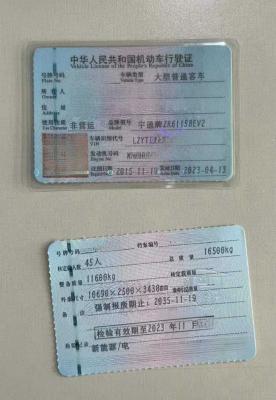 中华人民共和国机动车行驶证
Vehicle License of the People's Republic of China
号牌号码 车辆类型 大型普通客车
Plate No. Vehicle Type
所有人
Owner
住址
Address
使用性质 非营运 品牌型号
Use Character Model
车辆识别代号
VIN
发动机号码
Engine No.
2015-11-19 发证日期 2023-04-13
号牌号码 档案编号
核定载人数 45人 总质量 16500kg
整备质量 11600kg 核定载质量
外廓尺寸
备注 强制报废期止:2035-11-19
检验有效期至2023年11月
检验记录 新能源/电